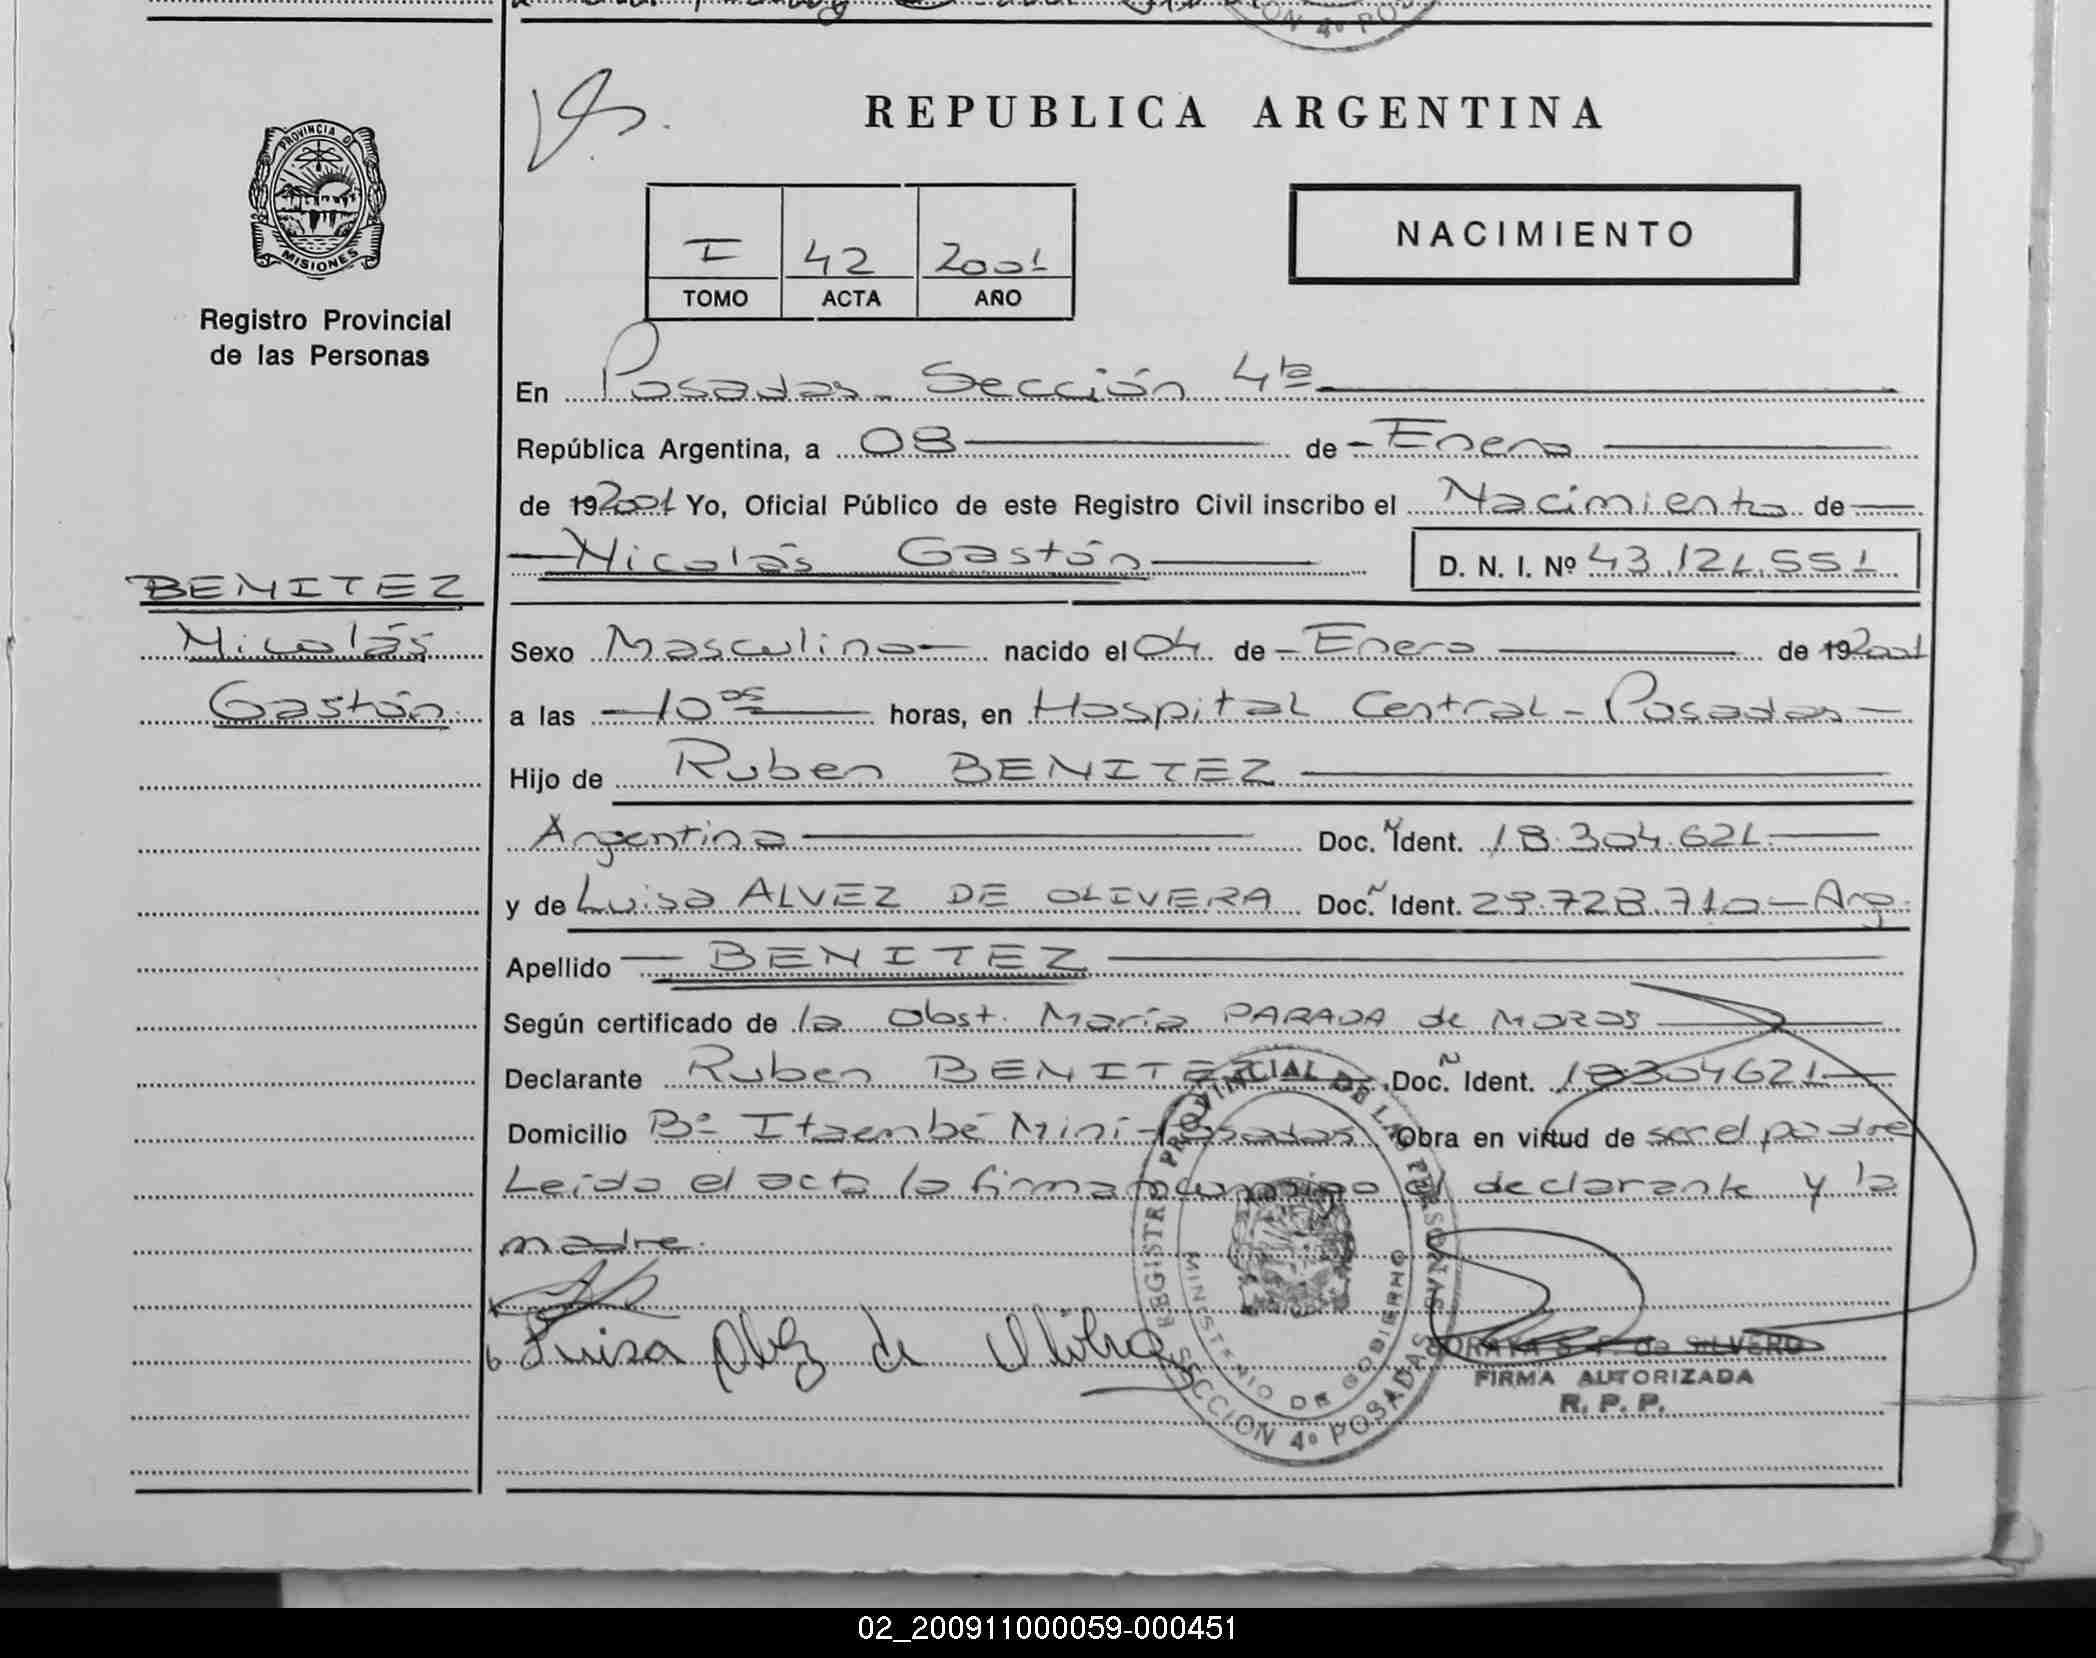 REPUBLICA ARGENTINA
PROVINCIA DE
MISIONES
Registro Provincial
de las Personas
I 42 2001
TOMO ACTA AÑO
NACIMIENTO
En Posadas - Sección 4ta
República Argentina, a 08 de Enero
de 19 2001 Yo, Oficial Público de este Registro Civil inscribo el Nacimiento de
Nicolás Gastón D. N. I. Nº 43.121.551
BENITEZ
Nicolás
Gastón
Sexo Masculino nacido el 04 de Enero de 19 2001
a las 10 05 horas, en Hospital Central - Posadas
Hijo de Ruben BENITEZ
Argentina Doc. N Ident. 18.304.621
y de Luisa ALVEZ DE OLIVERA Doc. N Ident. 29.728.710 - Arg.
Apellido BENITEZ
Según certificado de la Obst. María PARADA de MOROS
Declarante Ruben BENITEZ Doc. N Ident. 18304621
Domicilio Bº Itaembé Mini - Posadas Obra en virtud de ser el padre
Leida el acta la firma conmigo el declarante y la
madre.
Luisa Alvez de Olivera
REGISTRO PROVINCIAL DE LAS PERSONAS
MINISTERIO DE GOBIERNO
SECCION 4º POSADAS
SORAYA S. F. de SILVERO
FIRMA AUTORIZADA
R. P. P.
02_200911000059-000451